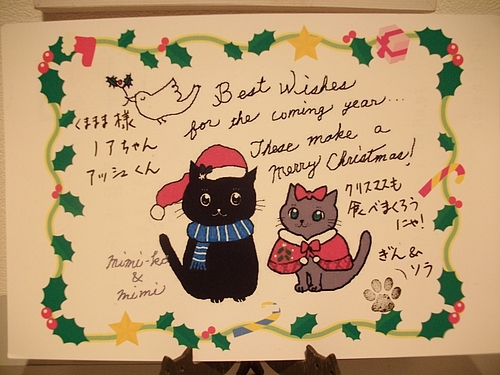 Best Wishes
for the coming year...
These make a
Merry Christmas!
くままま様
ノアちゃん
アッシュくん
クリスマスも
食べまくろう
にゃ!
ぎん&
ソラ
mimi-ko
&
mimi